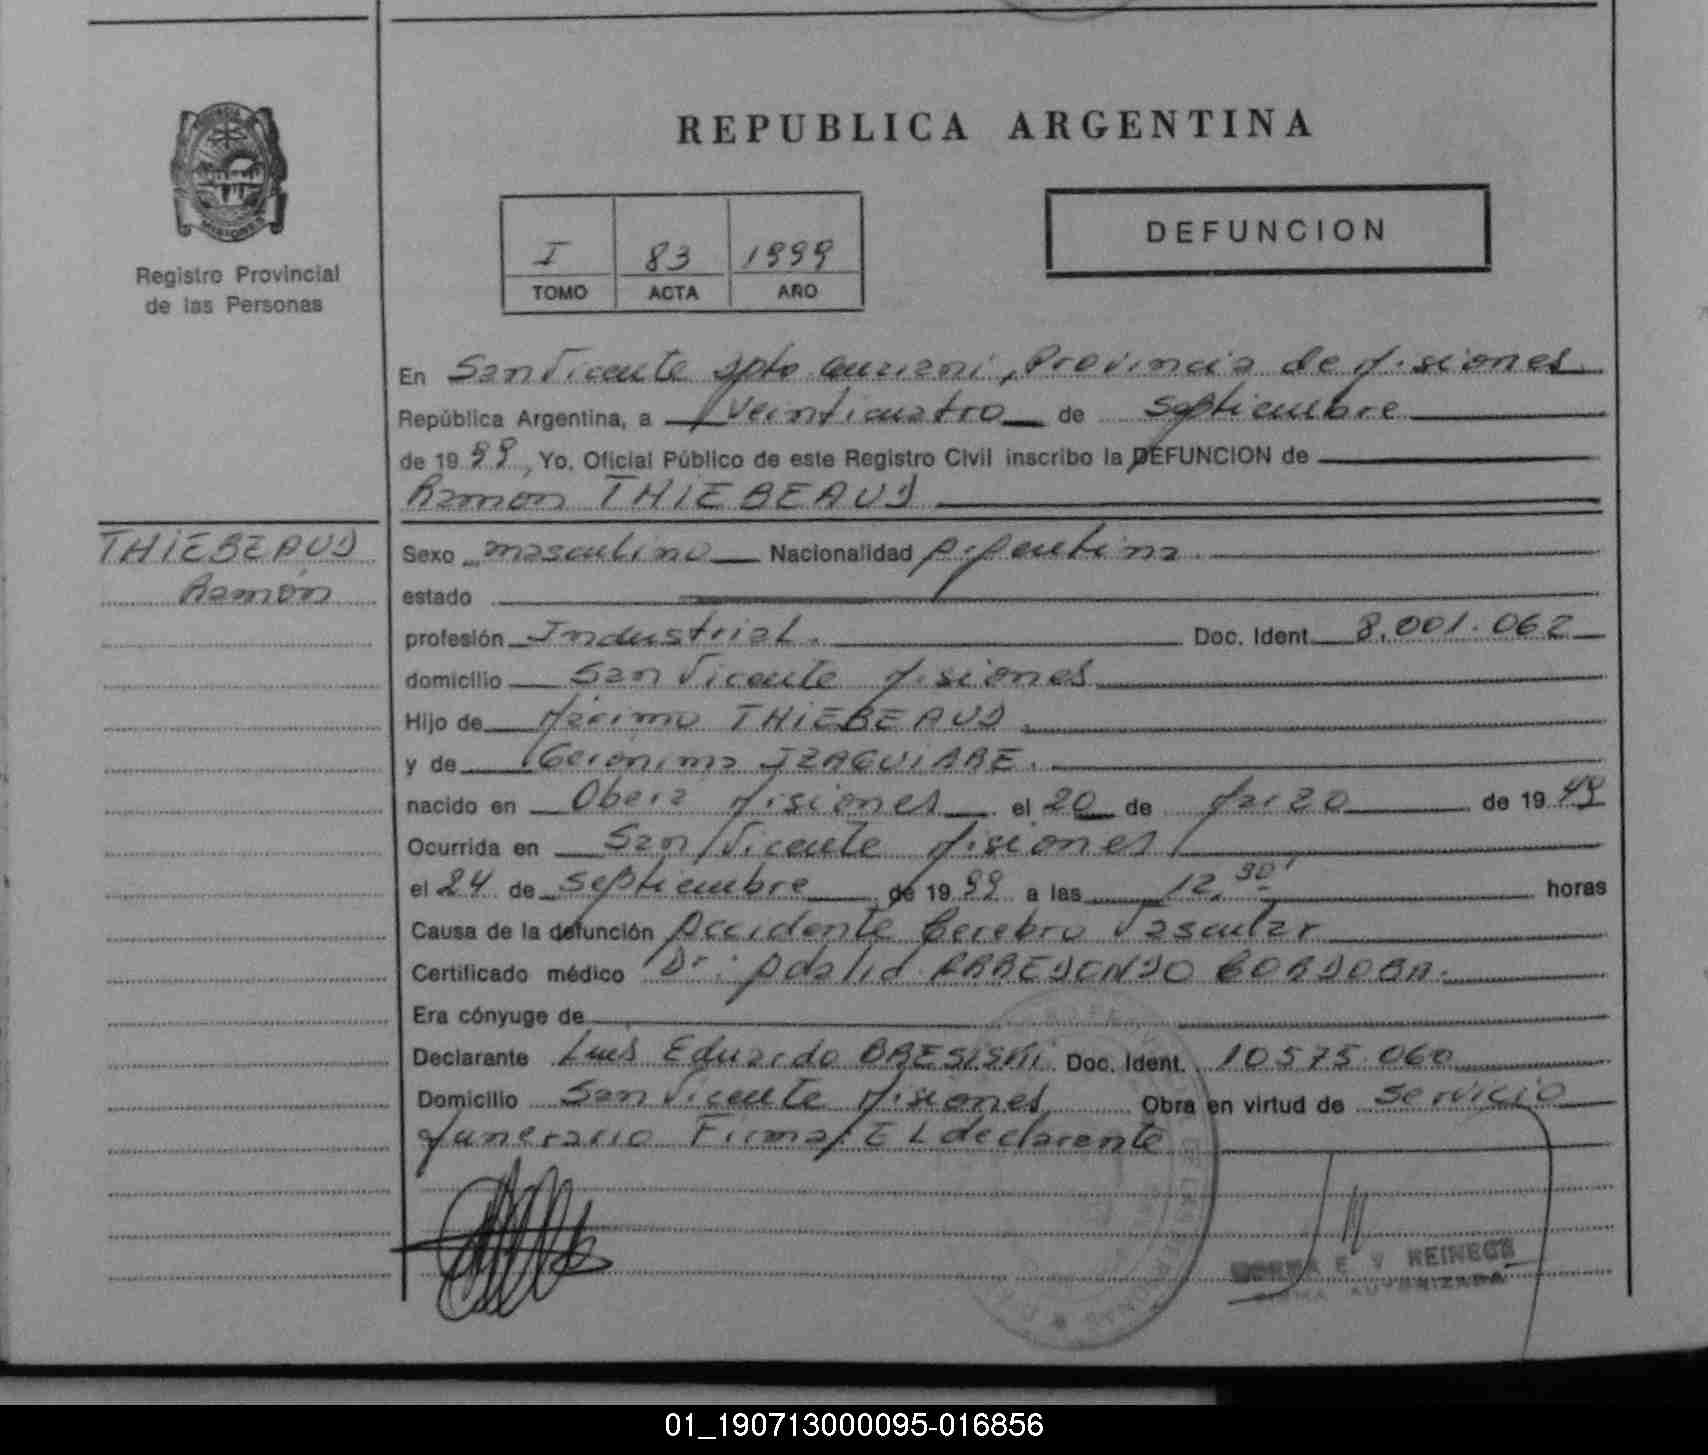 REPUBLICA ARGENTINA
MISIONES
Registro Provincial
de las Personas
I 83 1999
TOMO ACTA AÑO
DEFUNCION
En San Vicente Dpto Guarani, Provincia de Misiones
República Argentina, a Veinticuatro de Septiembre
de 19 99, Yo, Oficial Público de este Registro Civil inscribo la DEFUNCION de
Ramón THIEBEAUD
THIEBEAUD
Ramón
Sexo masculino Nacionalidad Argentina
estado
profesión Industrial. Doc. Ident. 8.001.062
domicilio San Vicente Misiones
Hijo de Máximo THIEBEAUD
y de Gerónima IZAGUIRRE.
nacido en Oberá Misiones el 20 de Marzo de 19 49
Ocurrida en San Vicente Misiones
el 24 de Septiembre de 19 99 a las 12,30' horas
Causa de la defunción Accidente Cerebro Vascular
Certificado médico Dr: Adalid ARREDONDO CORDOBA.
Era cónyuge de
Declarante Luis Eduardo Doc. Ident. 10575.060
Domicilio San Vicente Misiones Obra en virtud de Servicio
funerario Firma: El declarante
NORMA E. V. REINECK
FIRMA AUTORIZADA
01_190713000095-016856